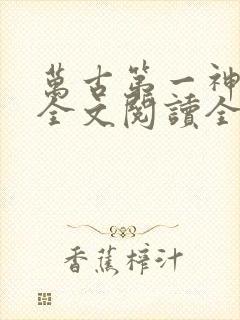 萬古第一神
全文閱讀全
香蕉榨汁